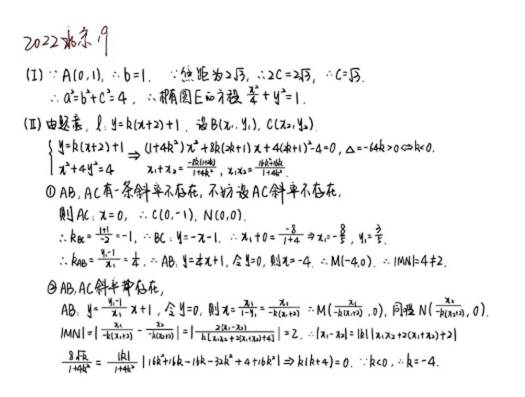 2022北京19
(I) ∵ A(0,1), ∴ b=1. ∵ 焦距为2√3, ∴ 2C=2√3, ∴ C=√3.
∴ a²=b²+c²=4, ∴ 椭圆E的方程 x²/4+y²=1.
(II) 由题意, l: y=k(x+2)+1. 设B(x₁,y₁), C(x₂,y₂).
{ y=k(x+2)+1
x²+4y²=4 ⇒ (1+4k²)x²+8k(2k+1)x+4(2k+1)²-4=0, Δ=-64k>0⇔k<0.
x₁+x₂=-8k(1+2k)/(1+4k²), x₁x₂=(16k²+16k)/(1+4k²).
① AB, AC有一条斜率不存在, 不妨设AC斜率不存在,
则AC: x=0, ∴ C(0,-1), N(0,0).
∴ k_BC=(1+1)/(-2)=-1, ∴ BC: y=-x-1. ∴ x₁+0=-8/(1+4)⇒x₁=-8/5, y₁=3/5.
∴ k_AB=(y₁-1)/x₁=1/4, ∴ AB: y=1/4x+1, 令y=0, 则x=-4. ∴ M(-4,0). ∴ |MN|=4≠2.
② AB, AC斜率都存在,
AB: y=(y₁-1)/x₁ x+1, 令y=0, 则x=x₁/(1-y₁)=x₁/(-k(x₁+2)) ∴ M(x₁/(-k(x₁+2)), 0), 同理N(x₂/(-k(x₂+2)), 0).
|MN|=|x₁/(-k(x₁+2))-x₂/(-k(x₂+2))|=|2(x₁-x₂)/(k[x₁x₂+2(x₁+x₂)+4])|=2. ∴ |x₁-x₂|=|k||x₁x₂+2(x₁+x₂)+2|
8√-k/(1+4k²)=|k|/(1+4k²)|16k²+16k-16k-32k²+4+16k²|⇒k(k+4)=0. ∵ k<0, ∴ k=-4.